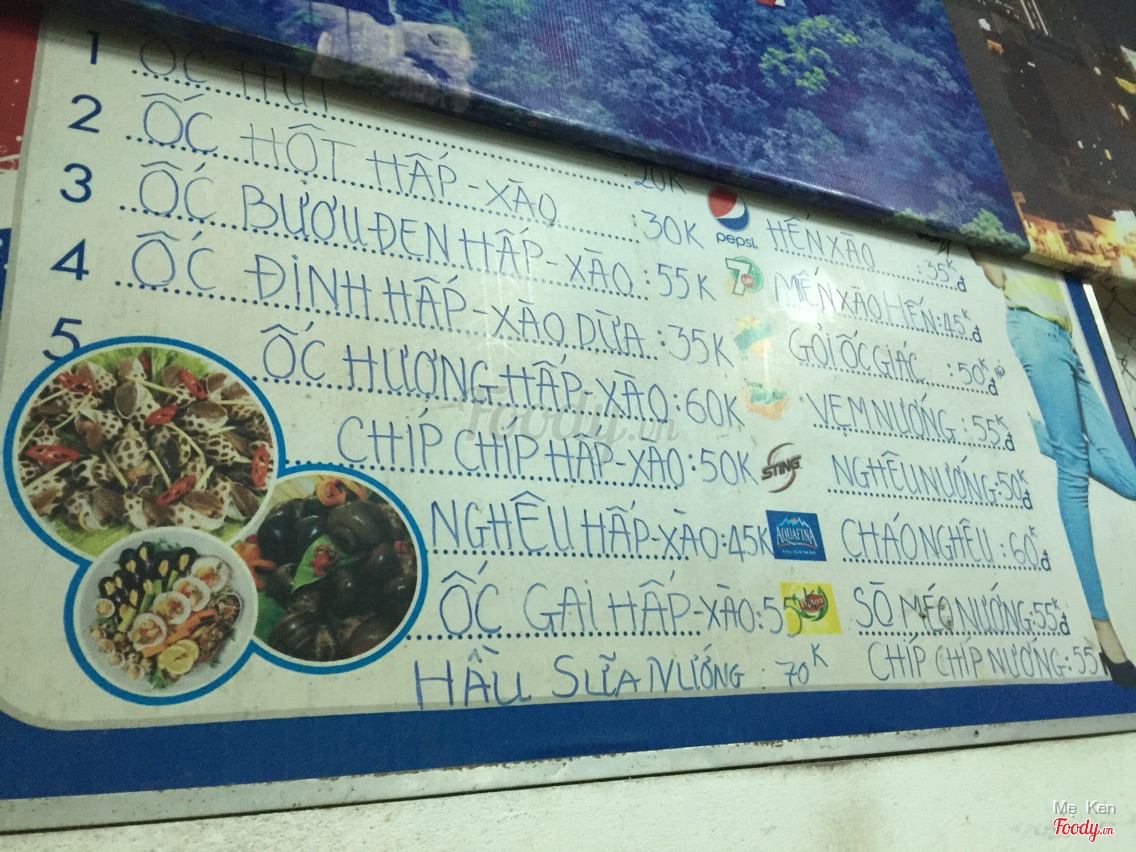 1 ỐC HÚT :20K
2 ỐC HỘT HẤP-XÀO :30K
3 ỐC BƯƠU ĐEN HẤP-XÀO :55K
4 ỐC ĐINH HẤP-XÀO DỪA :35K
5 ỐC HƯƠNG HẤP-XÀO :60K
CHÍP CHÍP HẤP-XÀO :50K
NGHÊU HẤP-XÀO :45K
ỐC GAI HẤP-XÀO :55K
HÀU SỮA NƯỚNG : 70K
pepsi
7
STING
AQUAFINA
Lipton
HẾN XÀO :35Kđ
MẾN XÀO HẾN :45Kđ
GỎI ỐC GIÁC :50Kđ
VẸM NƯỚNG :55Kđ
NGHÊU NƯỚNG :50Kđ
CHÁO NGHÊU :60Kđ
SÒ MÉO NƯỚNG :55Kđ
CHÍP CHÍP NƯỚNG :55
Foody.vn
Mẹ Ken
Foody.vn